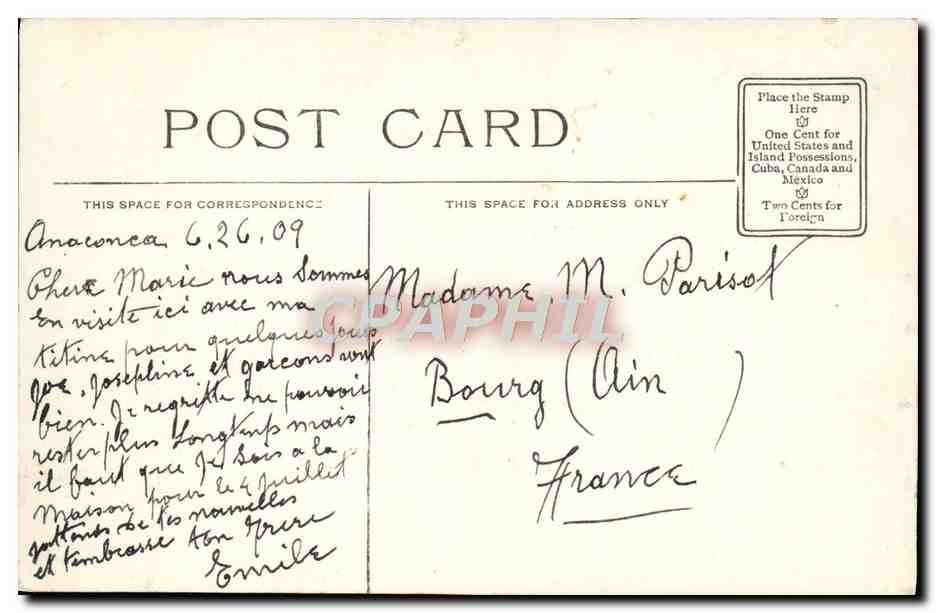 POST CARD
Place the Stamp
Here
One Cent for
United States and
Island Possessions,
Cuba, Canada and
Mexico
Two Cents for
Foreign
THIS SPACE FOR CORRESPONDENCE
THIS SPACE FOR ADDRESS ONLY
Anaconca 6.26.09
Chere Marie nous sommes
En visite ici avec ma
titine pour quelques jours
Joe, Josephine et garcons vont
bien. Je regrette ne pouvoir
rester plus Longtemps mais
il faut que je sois a la
Maison pour le 4 Juillet
jattends de tes nouvelles
et t'embrasse ton frere
Emile
Madame. M. Parisot
Bourg (Ain)
France
CPAPHIL